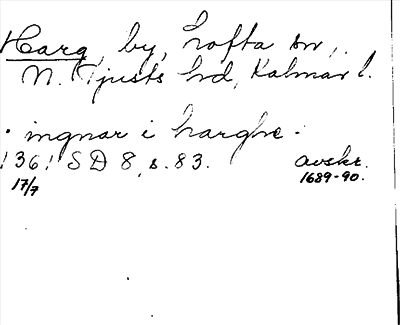 Harg, by, Lofta sn,
N. Tjusts hd, Kalmar l.
. ingnar i harghe .
! 36 ! SD 8, s. 83. avskr.
17/7 1689-90.